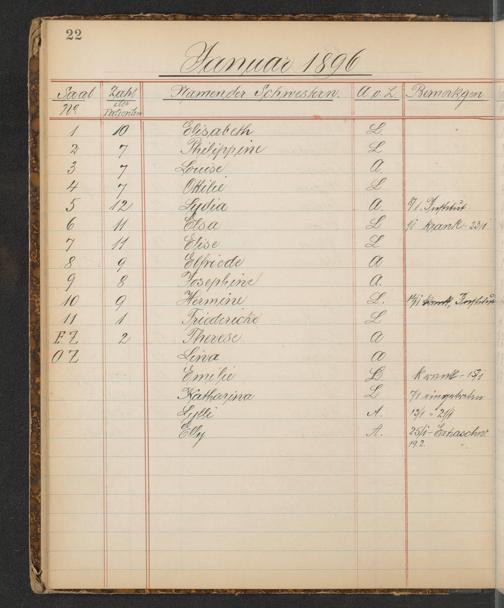 22
Januar 1896
Saal Zahl Namen der Schwestern. A. o. L. Bemerkgen
No der Patienten
1 10 Elisabeth L.
2 7 Philippine L.
3 7 Louise A.
4 7 Ottilie L
5 12 Lydia A. Institut
6 11 Elsa L krank - 23/1.
7 11 Elise L
8 9 Elfriede A
9 8 Josephine A.
10 9 Hermine L. krank, Institut
11 1 Friedericke L
F Z 2 Therese A
O Z Lina A
Emilie L krank - 15/1
Katharina L 7/1 eingetreten
Lylli A. 13/1 - 29/1
Elly A. 25/1 -
19.2.